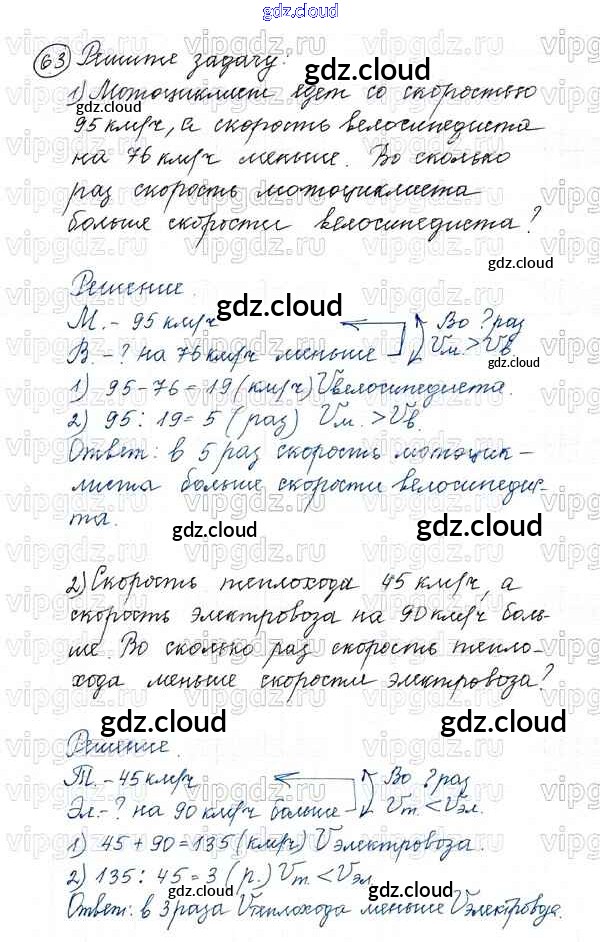 gdz.cloud
63 Решите задачу:
1) Мотоциклист едет со скоростью
95 км/ч, а скорость велосипедиста
на 76 км/ч меньше. Во сколько
раз скорость мотоциклиста
больше скорости велосипедиста?
Решение.
М. - 95 км/ч Во ? раз
В. - ? на 76 км/ч меньше Vм. > Vв
1) 95 - 76 = 19 (км/ч) Vвелосипедиста.
2) 95 : 19 = 5 (раз) Vм. > Vв.
Ответ: в 5 раз скорость мотоцик-
листа больше скорости велосипедис-
та.
2) Скорость теплохода 45 км/ч, а
скорость электровоза на 90 км/ч боль-
ше. Во сколько раз скорость тепло-
хода меньше скорости электровоза?
Решение.
Т. - 45 км/ч Во ? раз
Эл. - ? на 90 км/ч больше Vт. < Vэл.
1) 45 + 90 = 135 (км/ч) Vэлектровоза.
2) 135 : 45 = 3 (р.) Vт. < Vэл.
Ответ: в 3 раза Vтеплохода меньше Vэлектровоза.
gdz.cloud